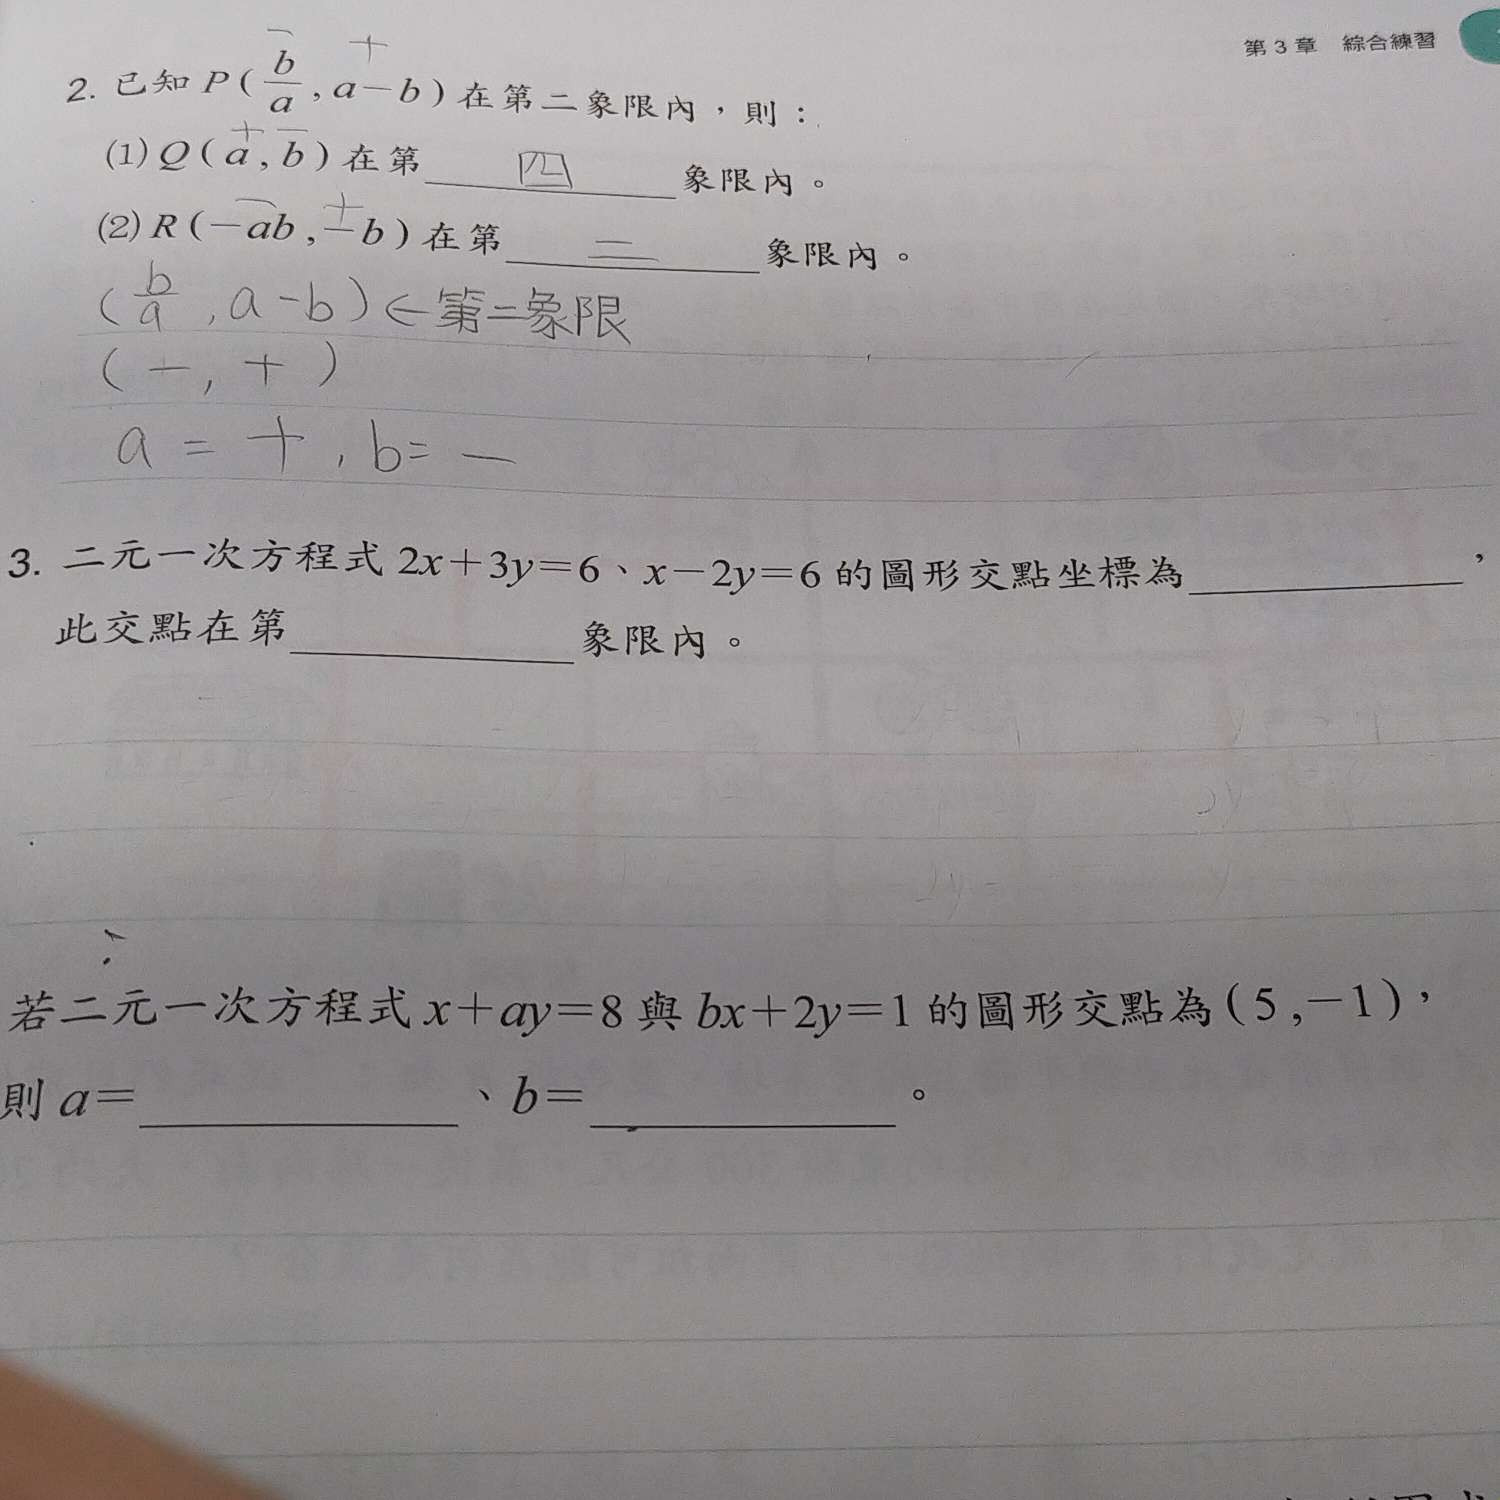 第3章 綜合練習
2. 已知P(b/a,a-b)在第二象限內,則:
(1) Q(a,b)在第 四 象限內。
(2) R(-ab,-b)在第 二 象限內。
(b/a, a-b) ← 第二象限
(-, +)
a = +, b = -
3. 二元一次方程式2x+3y=6、x-2y=6的圖形交點坐標為______,
此交點在第______象限內。
若二元一次方程式x+ay=8與bx+2y=1的圖形交點為(5,-1),
則a=______、b=______。